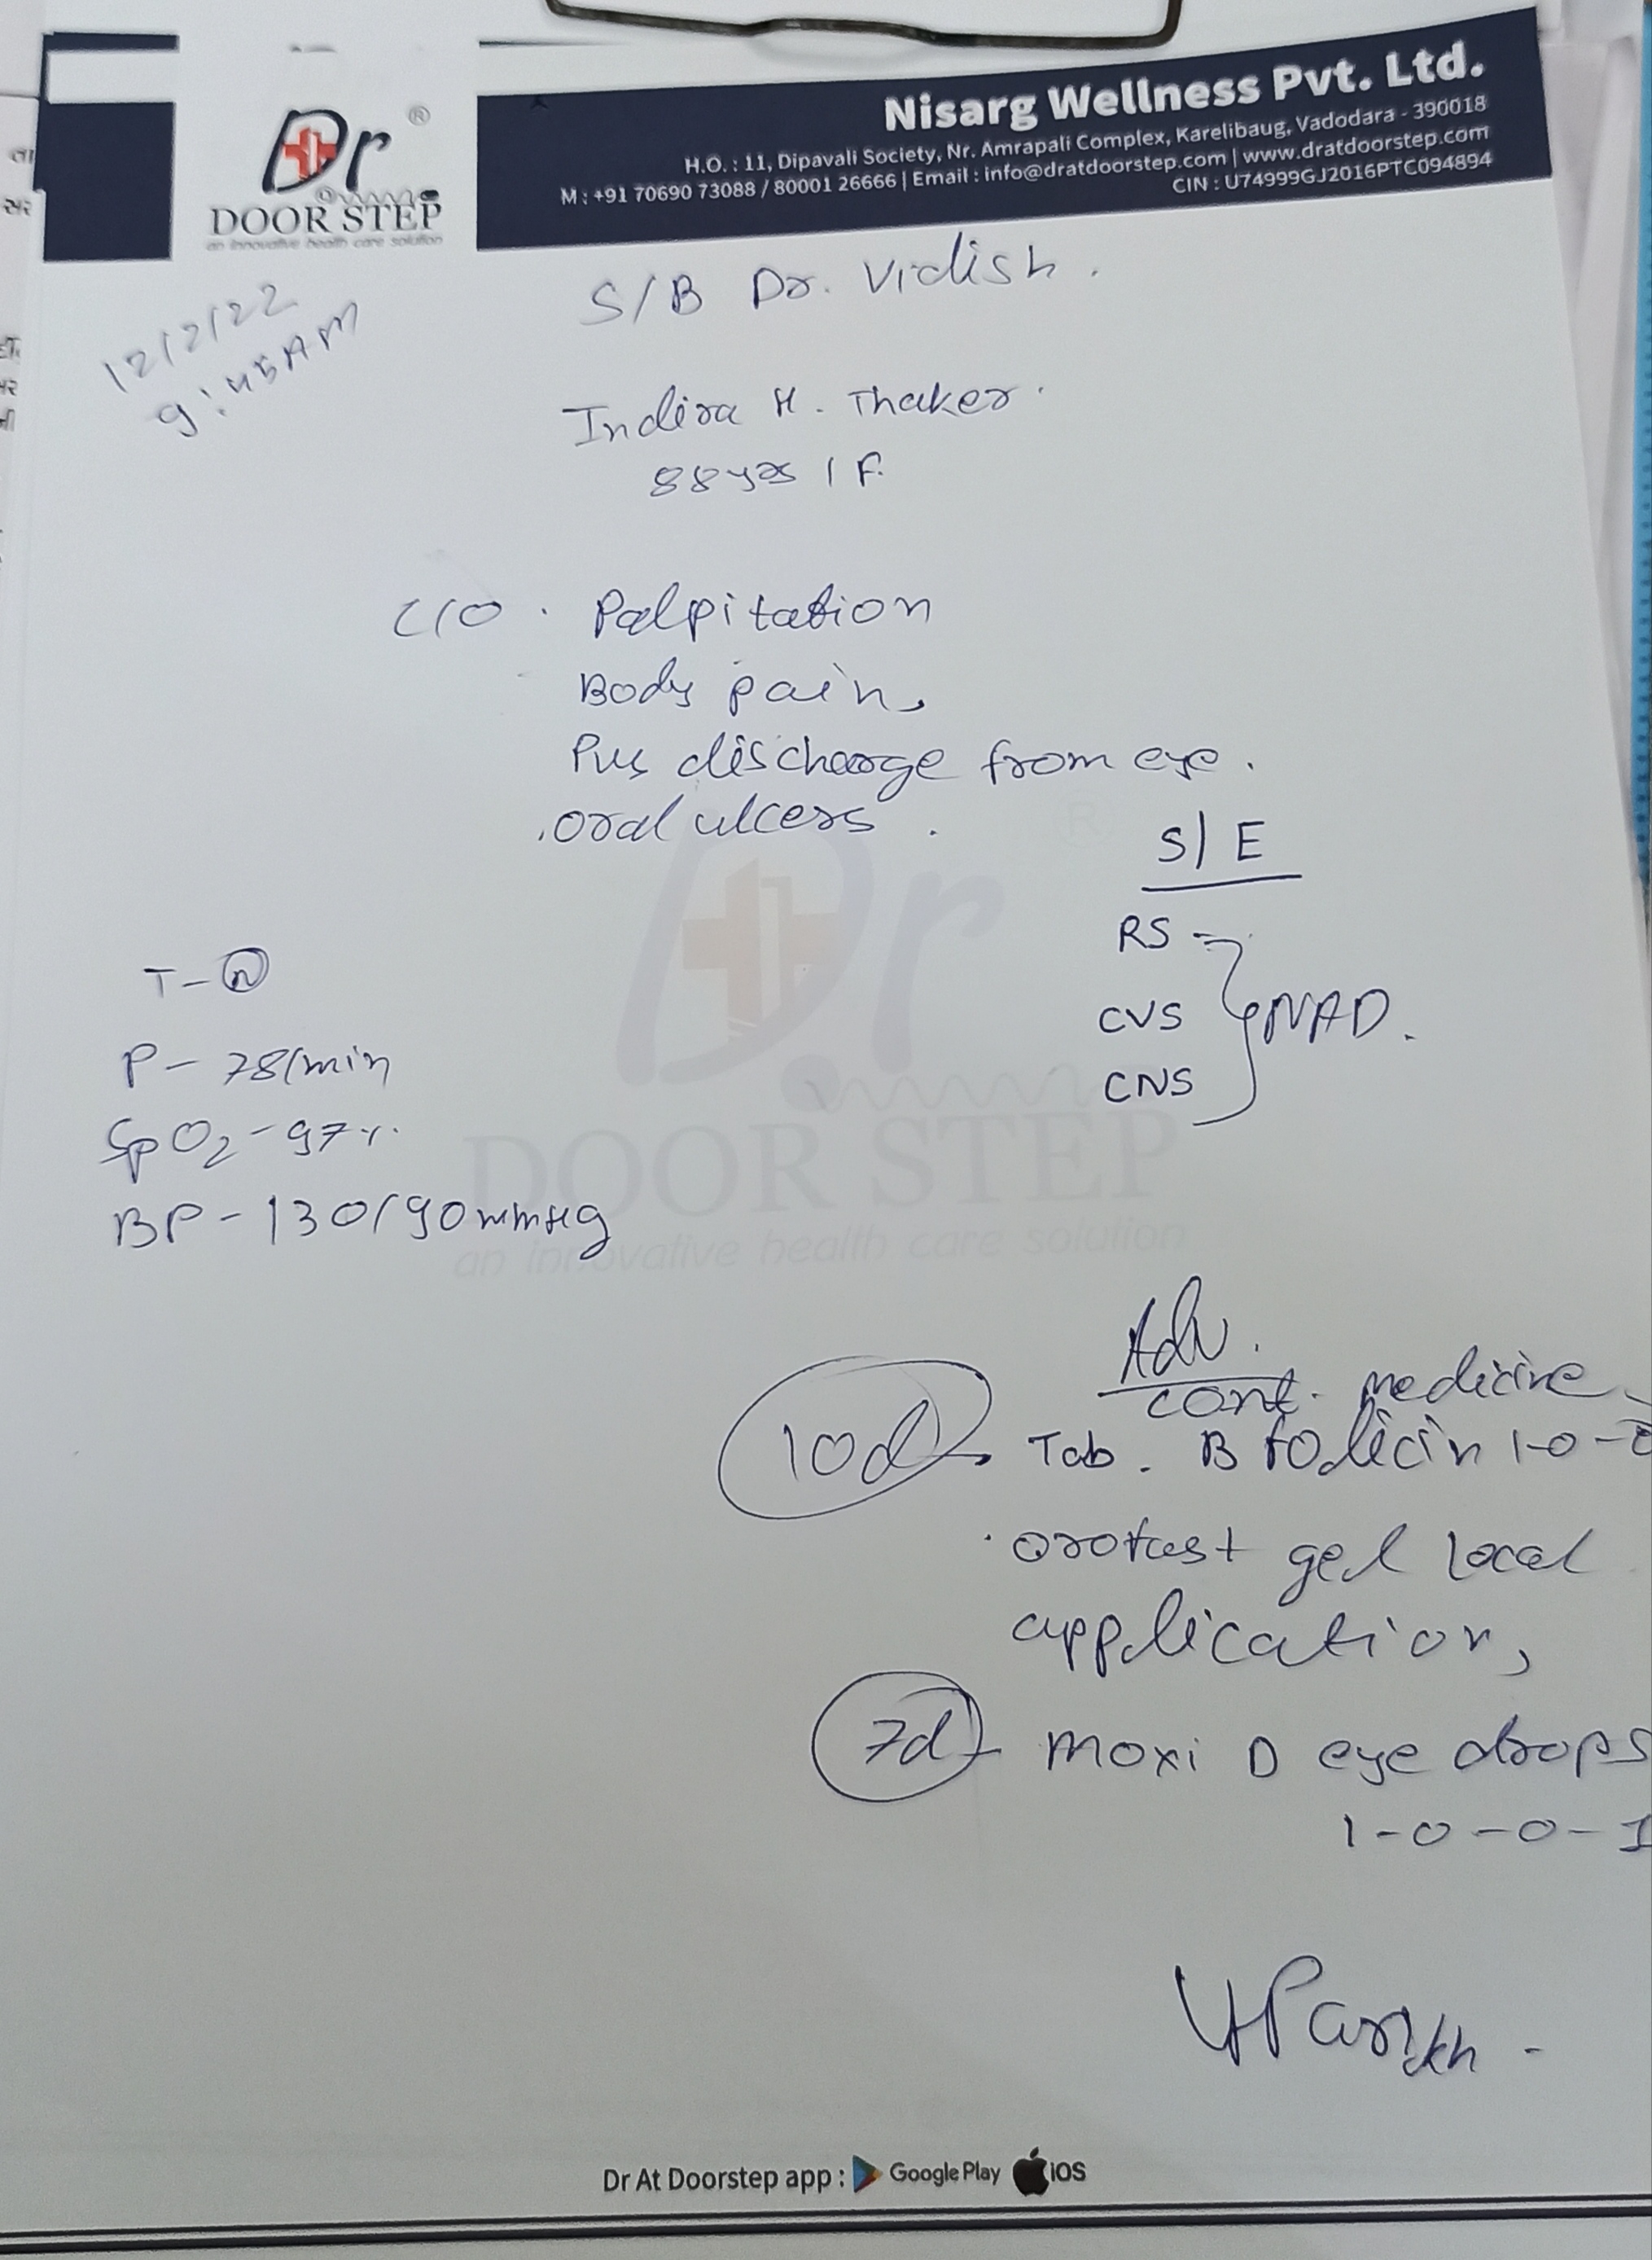 Dr ®
DOOR STEP
an innovative health care solution
Nisarg Wellness Pvt. Ltd.
H.O. : 11, Dipavali Society, Nr. Amrapali Complex, Karelibaug, Vadodara - 390018
M : +91 70690 73088 / 80001 26666 | Email : info@dratdoorstep.com | www.dratdoorstep.com
CIN : U74999GJ2016PTC094894
12/2/22
9:45AM
S/B Dr. Vidish.
Indira H. Thaker.
88yrs / F.
C/O. Palpitation
Body pain,
Pus discharge from eye.
.oral ulcers.
S/E
RS
CVS } NAD.
CNS
T-N
P- 78/min
SpO2-97%.
BP-130/90mmHg
Dr
DOOR STEP
an innovative health care solution
Adv.
cont. medicine
10d Tab. B folicin 1-0-0
. orofast gel local
application,
7d Moxi D eye drops
1-0-0-1
Parikh
Dr At Doorstep app : Google Play iOS